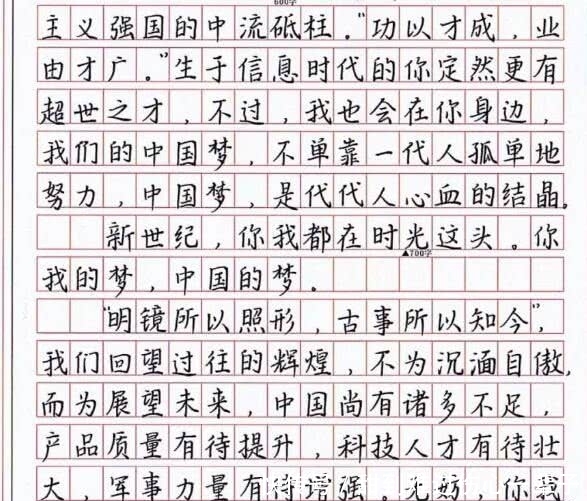 600字
主义强国的中流砥柱。"功以才成，业
由才广。"生于信息时代的你定然更有
超世之才，不过，我也会在你身边，
我们的中国梦，不单靠一代人孤单地
努力，中国梦，是代代人心血的结晶。
新世纪，你我都在时光这头。你
▲700字
我的梦，中国的梦。
"明镜所以照形，古事所以知今"，
我们回望过往的辉煌，不为沉湎自傲，
而为展望未来，中国尚有诸多不足，
产品质量有待提升，科技人才有待壮
大，军事力量有待增强。无妨，你我